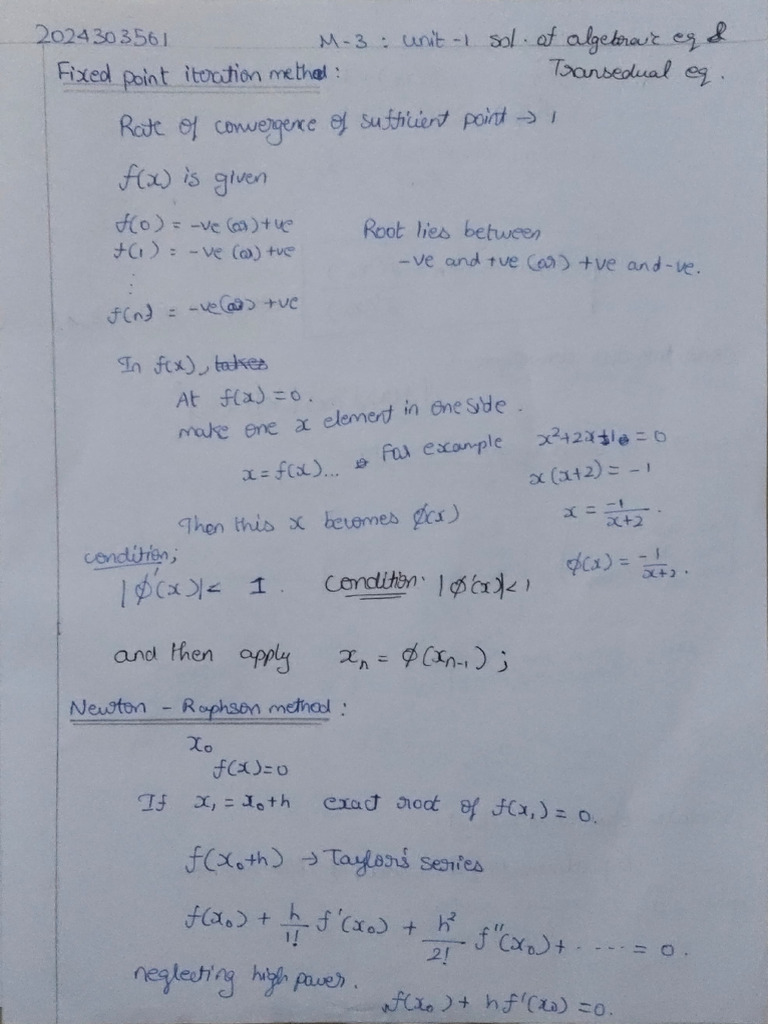 2024303561 M-3 : unit-1 sol. of algebraic eq &
Transedual eq.
Fixed point iteration method :
Rate of convergence of sufficient point → 1
f(x) is given
f(0) = -ve (or) +ve
f(1) = -ve (or) +ve
⋮
f(n) = -ve (or) +ve
Root lies between
-ve and +ve (or) +ve and -ve.
In f(x), takes
At f(x) = 0.
make one x element in one side.
x = f(x)... For example x²+2x+1 = 0
x(x+2) = -1
x = -1/x+2.
Then this x becomes φ(x)
φ(x) = -1/x+2.
condition;
|φ'(x)| < 1. condition: |φ'(x)| < 1
and then apply xₙ = φ(xₙ₋₁) ;
Newton - Raphson method :
x₀
f(x)=0
If x₁ = x₀+h exact root of f(x₁) = 0.
f(x₀+h) → Taylor's series
f(x₀) + h/1! f'(x₀) + h²/2! f''(x₀) + ..... = 0.
neglecting high power.
f(x₀) + hf'(x₀) = 0.